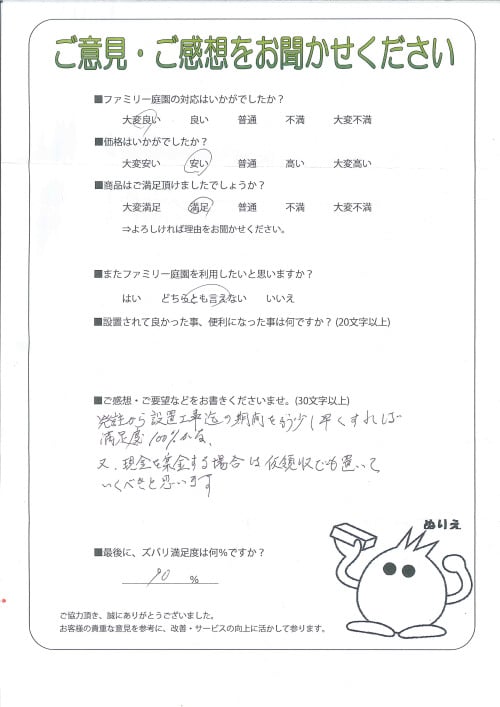 ご意見・ご感想をお聞かせください
■ファミリー庭園の対応はいかがでしたか？
大変良い 良い 普通 不満 大変不満
■価格はいかがでしたか？
大変安い 安い 普通 高い 大変高い
■商品はご満足頂けましたでしょうか？
大変満足 満足 普通 不満 大変不満
⇒よろしければ理由をお聞かせください。
■またファミリー庭園を利用したいと思いますか？
はい どちらとも言えない いいえ
■設置されて良かった事、便利になった事は何ですか？(20文字以上)
■ご感想・ご要望などをお書きくださいませ。(30文字以上)
発注から設置工事迄の期間をもう少し早くすれば
満足度100%かな、
又、現金を集金する場合は仮領収でも置いて
いくべきと思います
ぬりえ
■最後に、ズバリ満足度は何％ですか？
90 ％
ご協力頂き、誠にありがとうございました。
お客様の貴重な意見を参考に、改善・サービスの向上に活かして参ります。